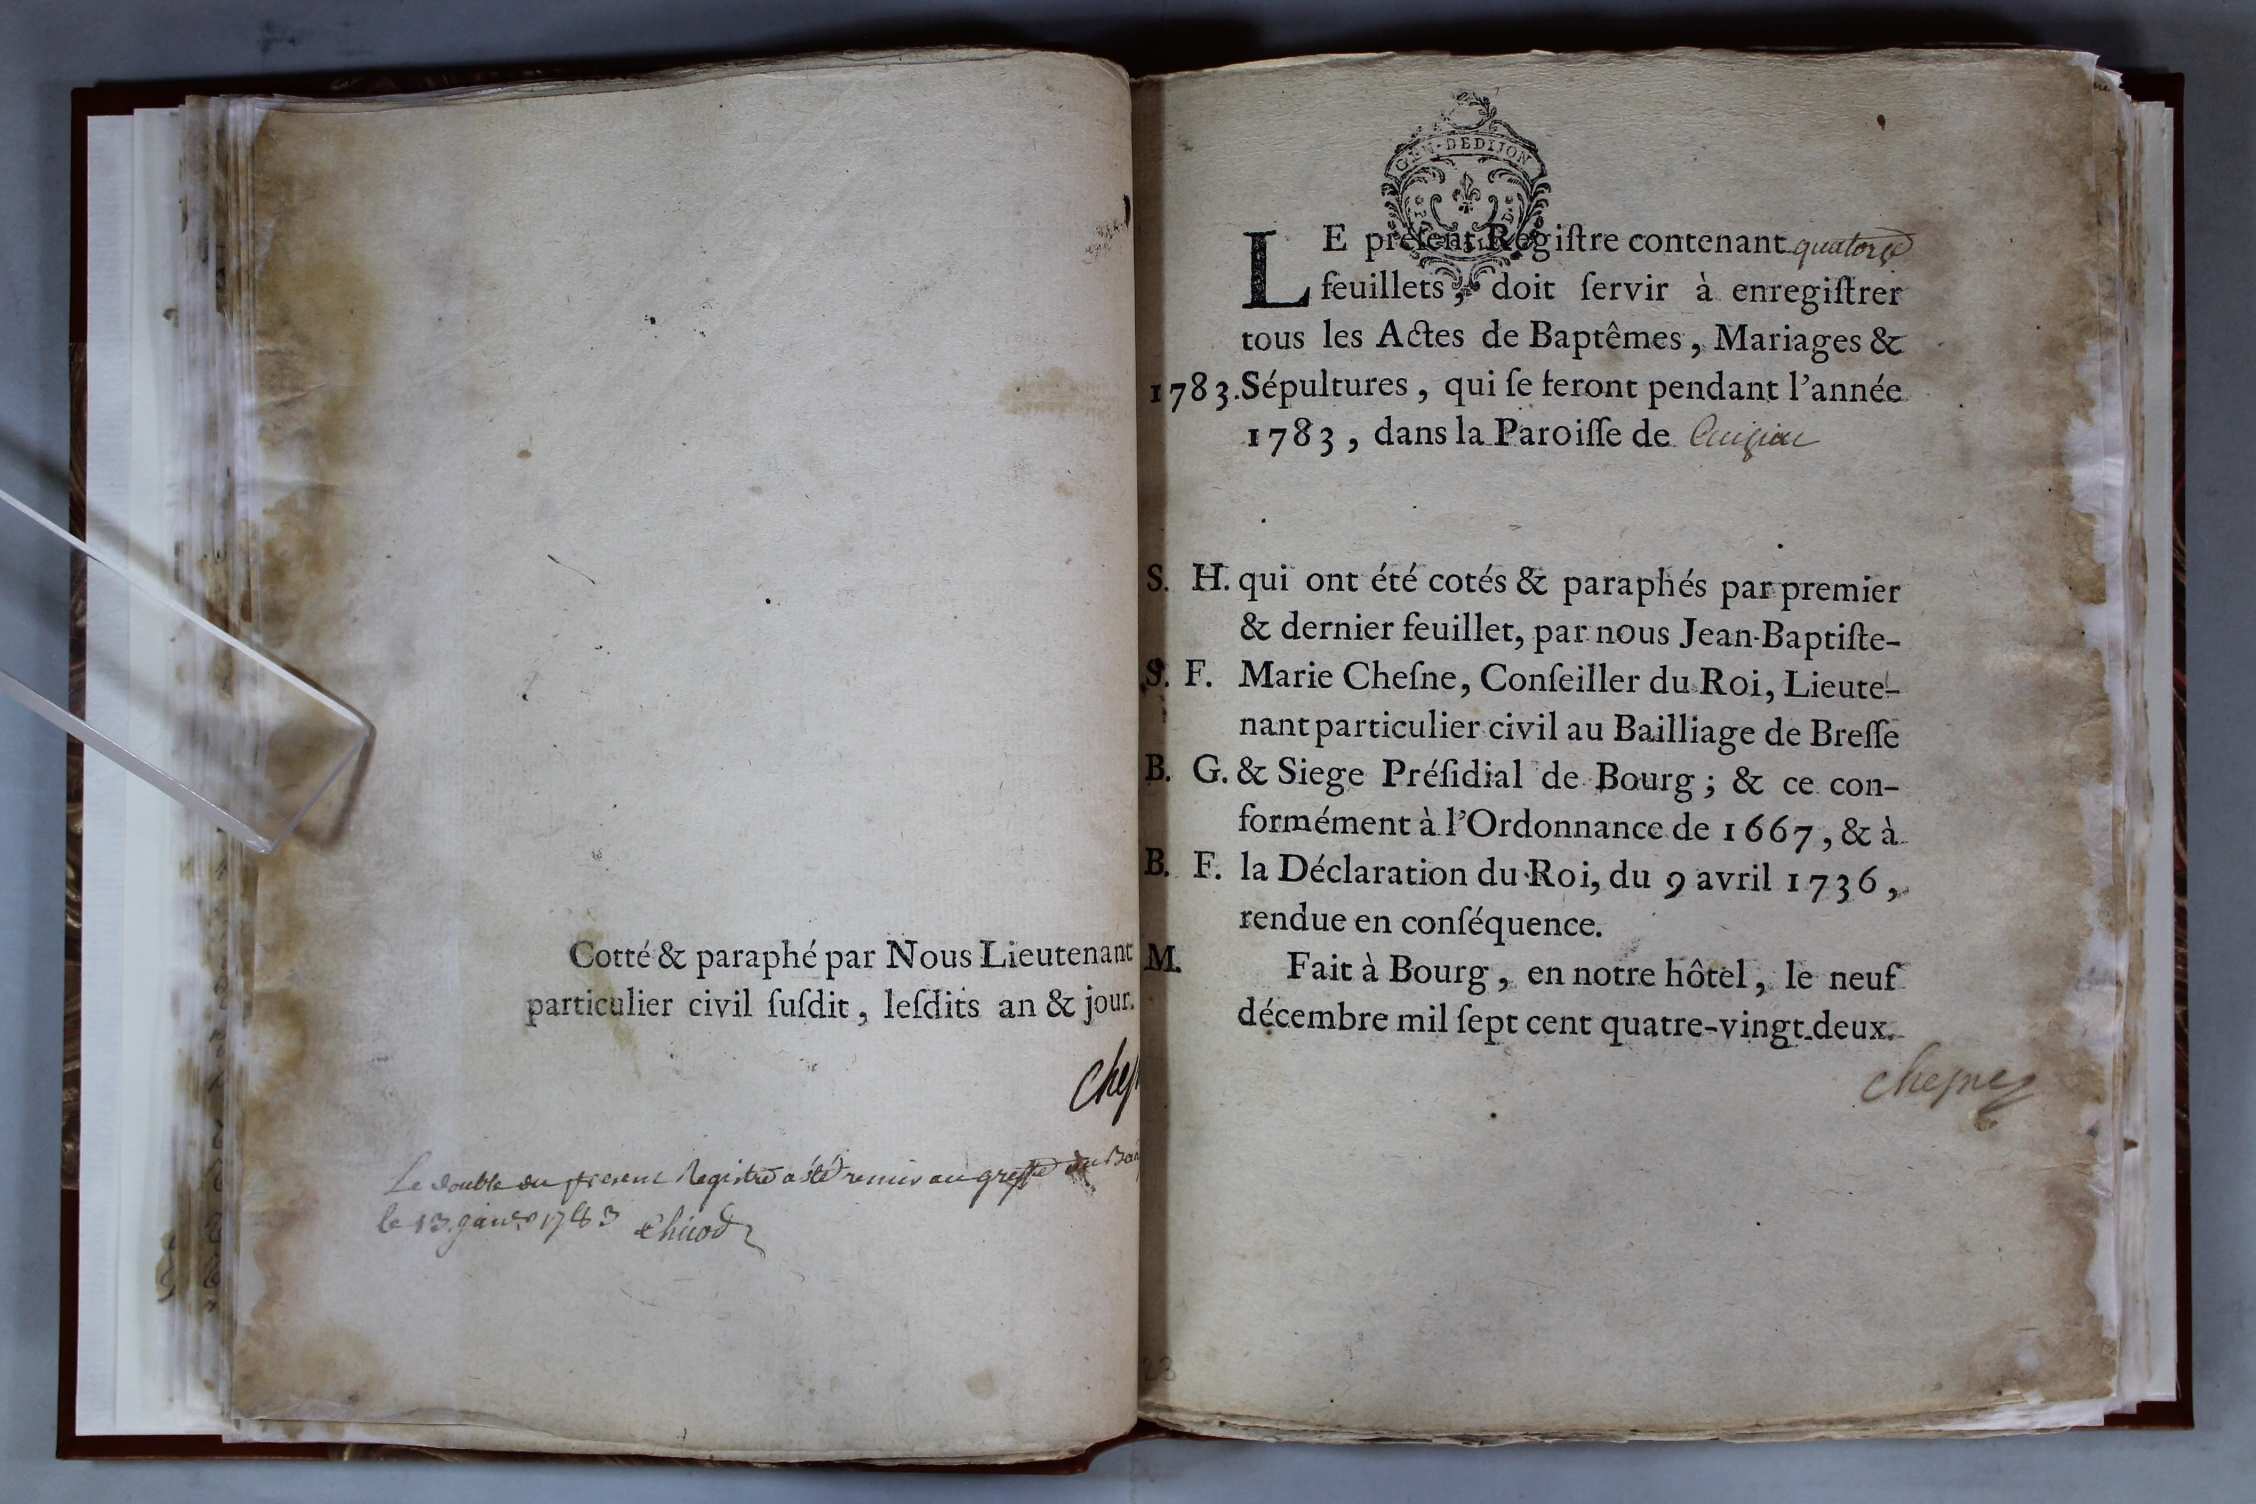 Cotté & paraphé par Nous Lieutenant
particulier civil ſuſdit, leſdits an & jour.
Cheſ
Le double du present Registre a été remis au greffe du Bai
le 13. janer 1783 Chicod
GEN · DE DIJON
LE préſent Regiſtre contenant quatorze
feuillets, doit ſervir à enregiſtrer
tous les Actes de Baptêmes, Mariages &
1783. Sépultures, qui ſe feront pendant l'année
1783, dans la Paroiſſe de Cuiziau
S. H. qui ont été cotés & paraphés par premier
& dernier feuillet, par nous Jean-Baptiſte-
S. F. Marie Cheſne, Conſeiller du Roi, Lieute-
nant particulier civil au Bailliage de Breſſe
B. G. & Siege Préſidial de Bourg ; & ce con-
formément à l'Ordonnance de 1667, & à
B. F. la Déclaration du Roi, du 9 avril 1736,
rendue en conſéquence.
M. Fait à Bourg, en notre hôtel, le neuf
décembre mil ſept cent quatre-vingt-deux.
Cheſne
23